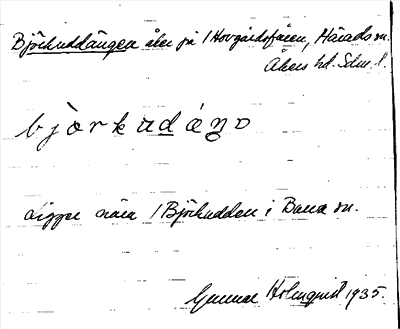 Björkuddängen åker på 1 Hovgårdsfåren, Härads sn.
Åkers hd. Sdm. l.
björkudäŋo
Ligger nära 1 Björkudden i Barva sn.
Gunnar Holmquist 1935.